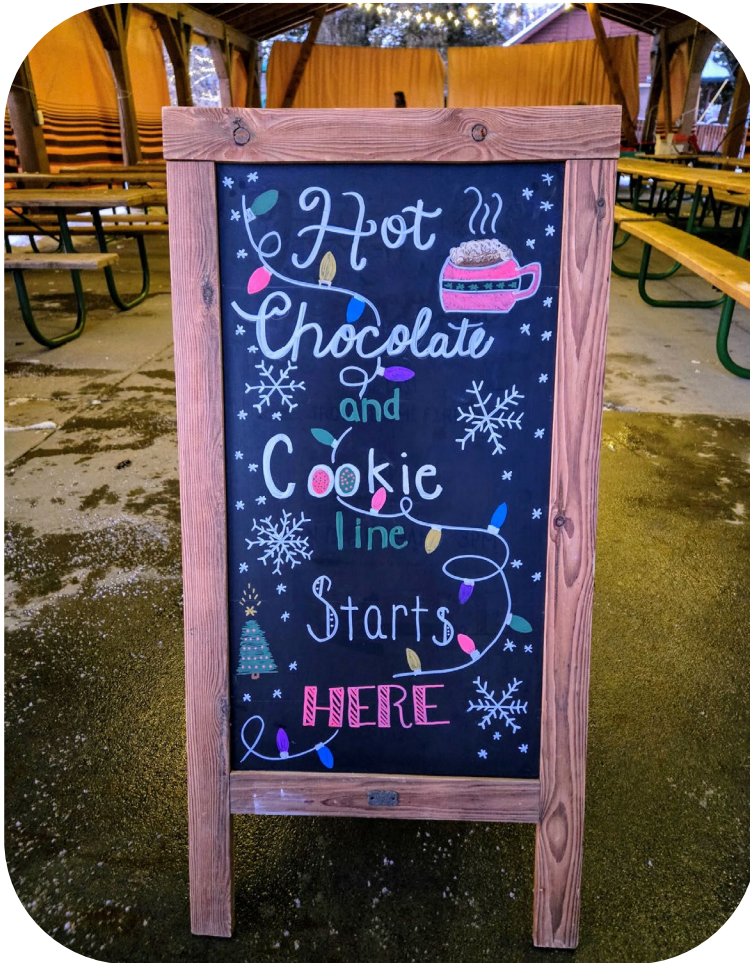 Hot
Chocolate
and
Cookie
line
Starts
HERE